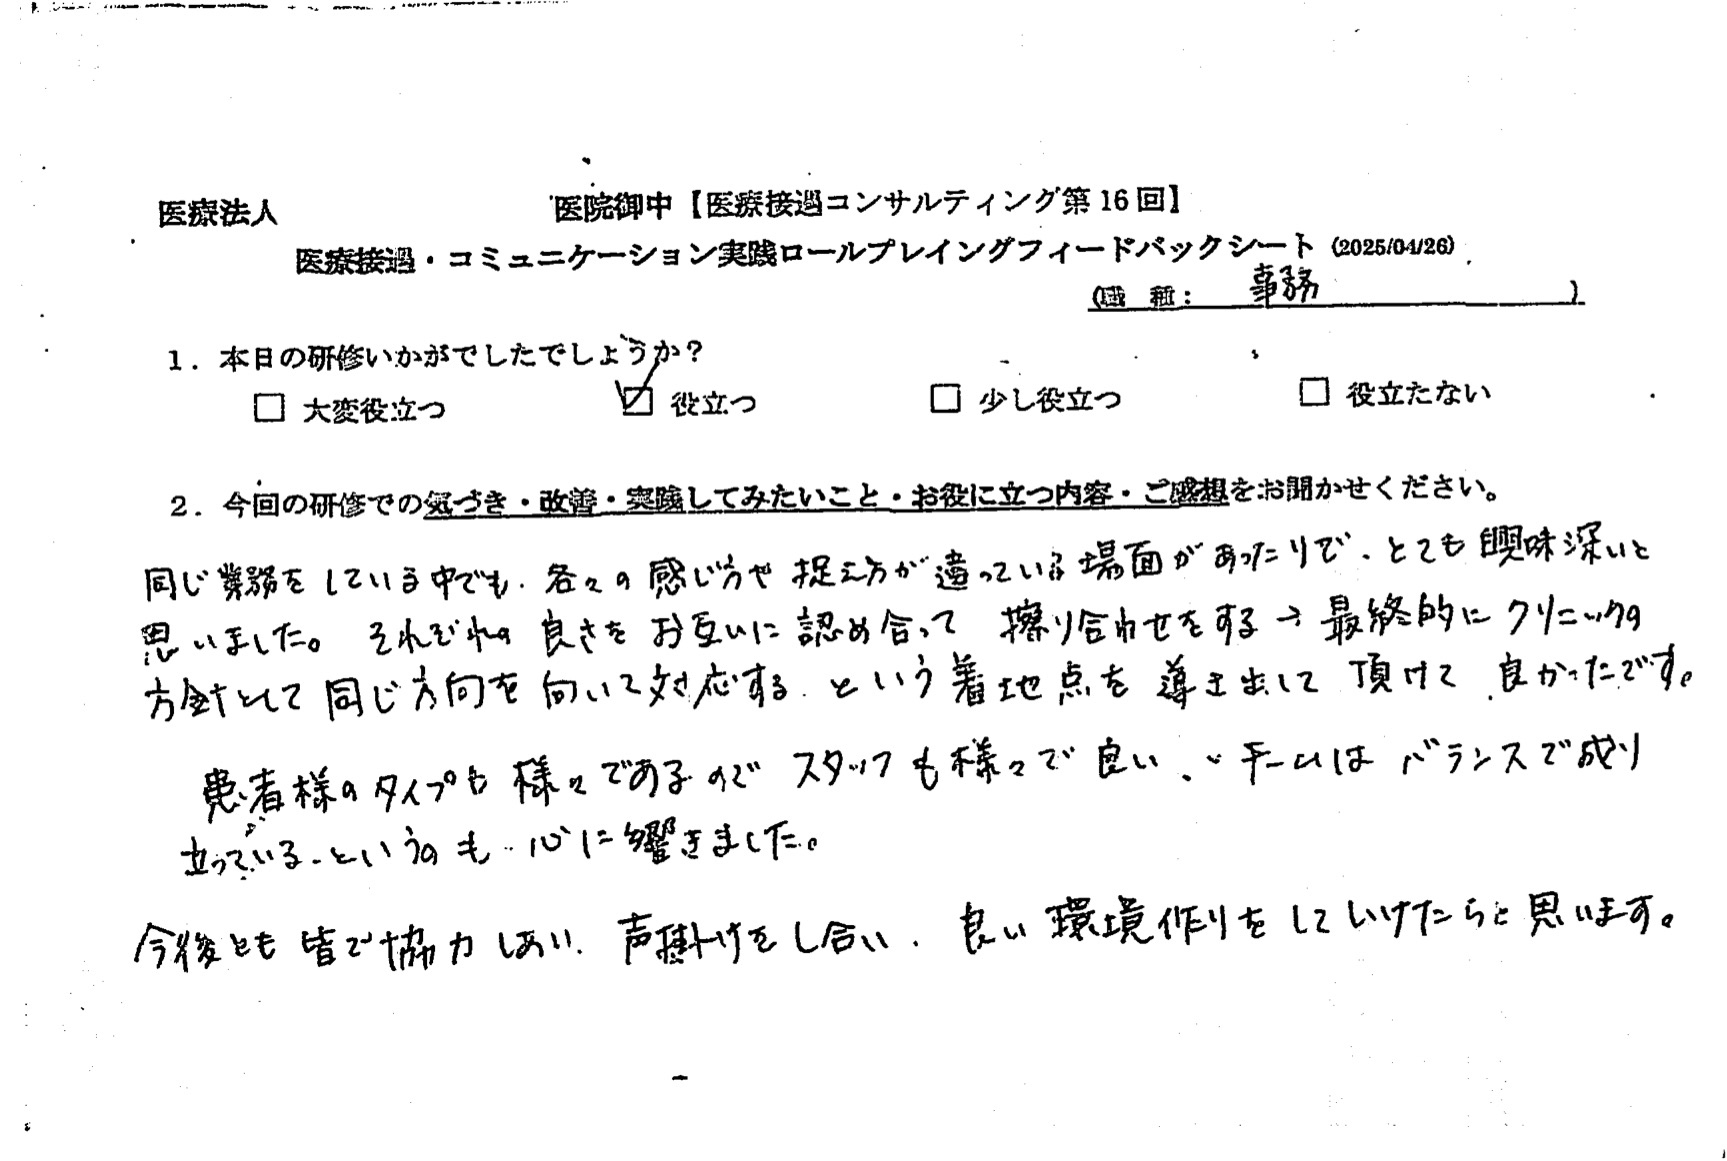 医療法人　医院御中【医療接遇コンサルティング第16回】
医療接遇・コミュニケーション実践ロールプレイングフィードバックシート (2025/04/26)
(職　種：　事務　)
1．本日の研修いかがでしたでしょうか？
□ 大変役立つ　☑ 役立つ　□ 少し役立つ　□ 役立たない
2．今回の研修での気づき・改善・実践してみたいこと・お役に立つ内容・ご感想をお聞かせください。
同じ業務をしている中でも、各々の感じ方や捉え方が違っている場面があったりで、とても興味深いと
思いました。それぞれの良さをお互いに認め合って擦り合わせをする→最終的にクリニックの
方針として同じ方向を向いて対応する、という着地点を導き出して頂けて良かったです。
患者様のタイプも様々であるのでスタッフも様々で良い、チームはバランスで成り
立っている、というのも心に響きました。
今後とも皆で協力しあい、声掛けをし合い、良い環境作りをしていけたらと思います。